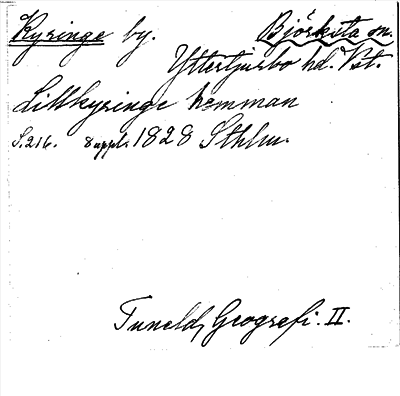 Kyringe by. Björksta sn.
Yttertjurbo hd. Vst.
Lillkyringe hemman
S. 216. 8 uppl. 1828 Sthlm.
Tuneld, Geografi. II.